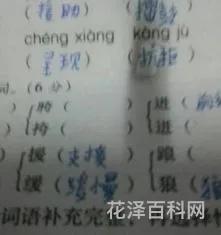 (援助) (
chéng xiàng kàng jù
(呈现) (抗拒)
词。(6分)
) 胯 ( ) 进 (
) 挎 ( ) 迸 (
) 援 (支援) 踉
缓 (缓慢) 狼 (狼
词语补充完整,再选择
花泽百科网